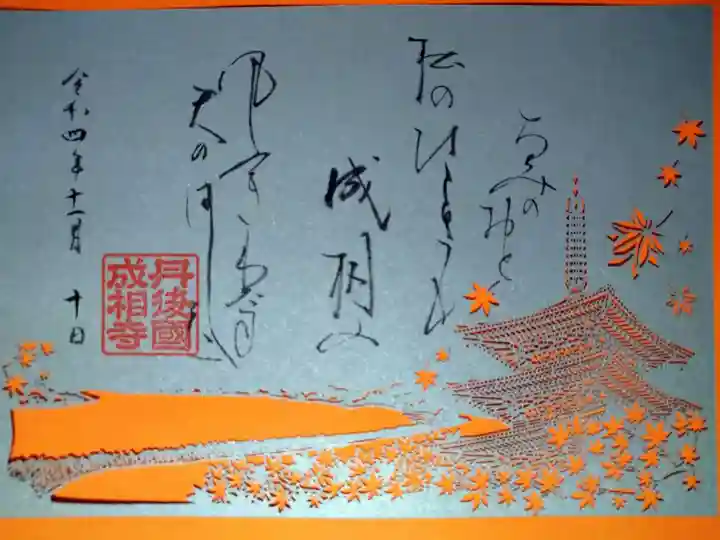 なみのおと
松のひゞきも
成相の
風ふきわたす
天のはし立
令和四年十一月 十日
丹後國
成相寺